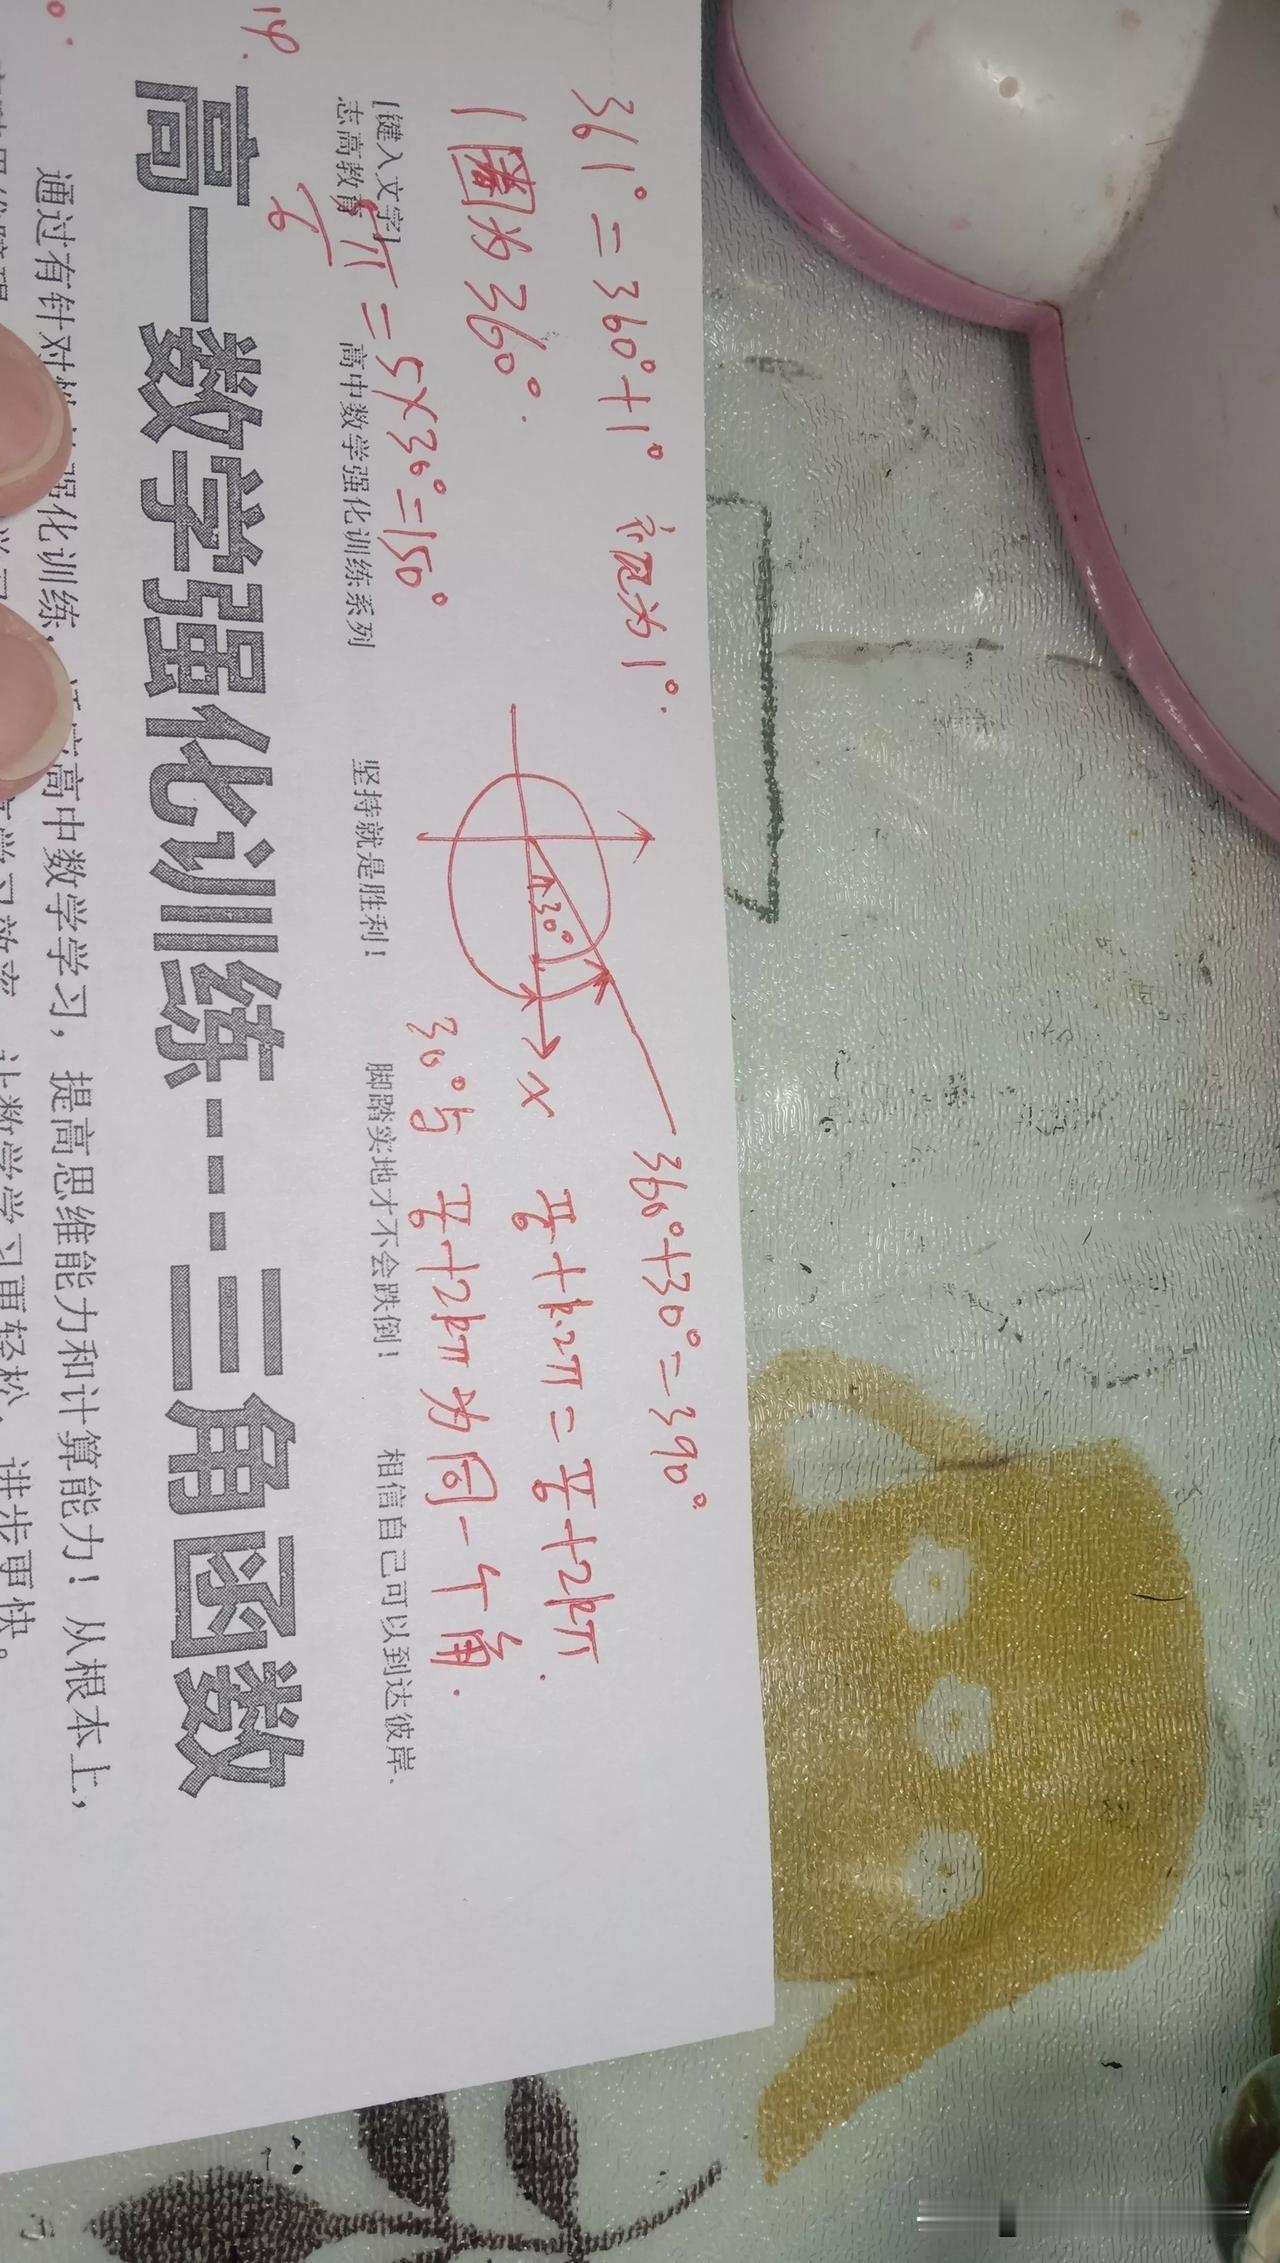 361°=360°+1° 视为1°.
1圈为360°.
360°+30°=390°
30°
x
π/6+k·2π=π/6+2kπ.
30°与π/6+2kπ为同一个角.
5π/6=5×30°=150°
[键入文字] 高中数学强化训练系列 坚持就是胜利! 脚踏实地才不会跌倒! 相信自己可以到达彼岸、
志高教育
14.
高一数学强化训练---三角函数
通过有针对性 强化训练, 高中数学学习,提高思维能力和计算能力!从根本上,
学习效率,让数学学习更轻松,进步更快。